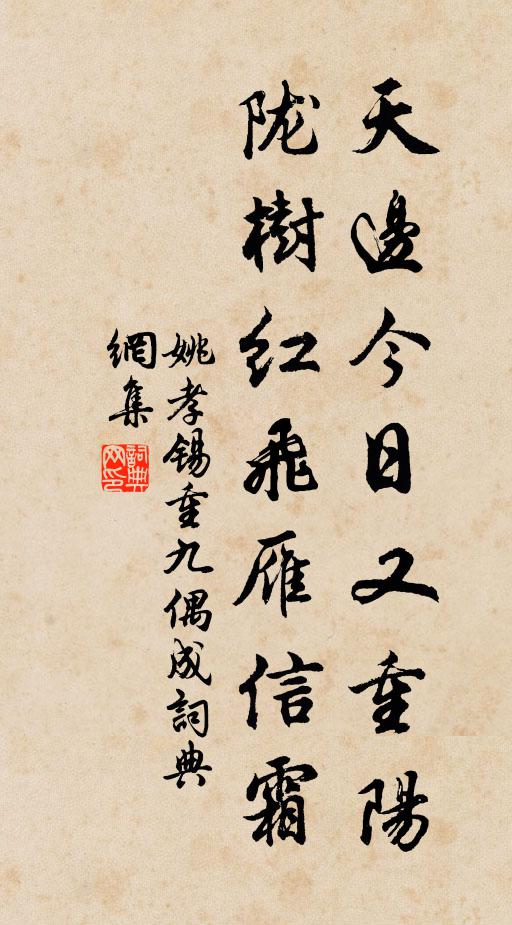 天邊今日又重陽
陇樹红飛雁信霜
姚孝锡重九偶成詞典
網集
詞典网印